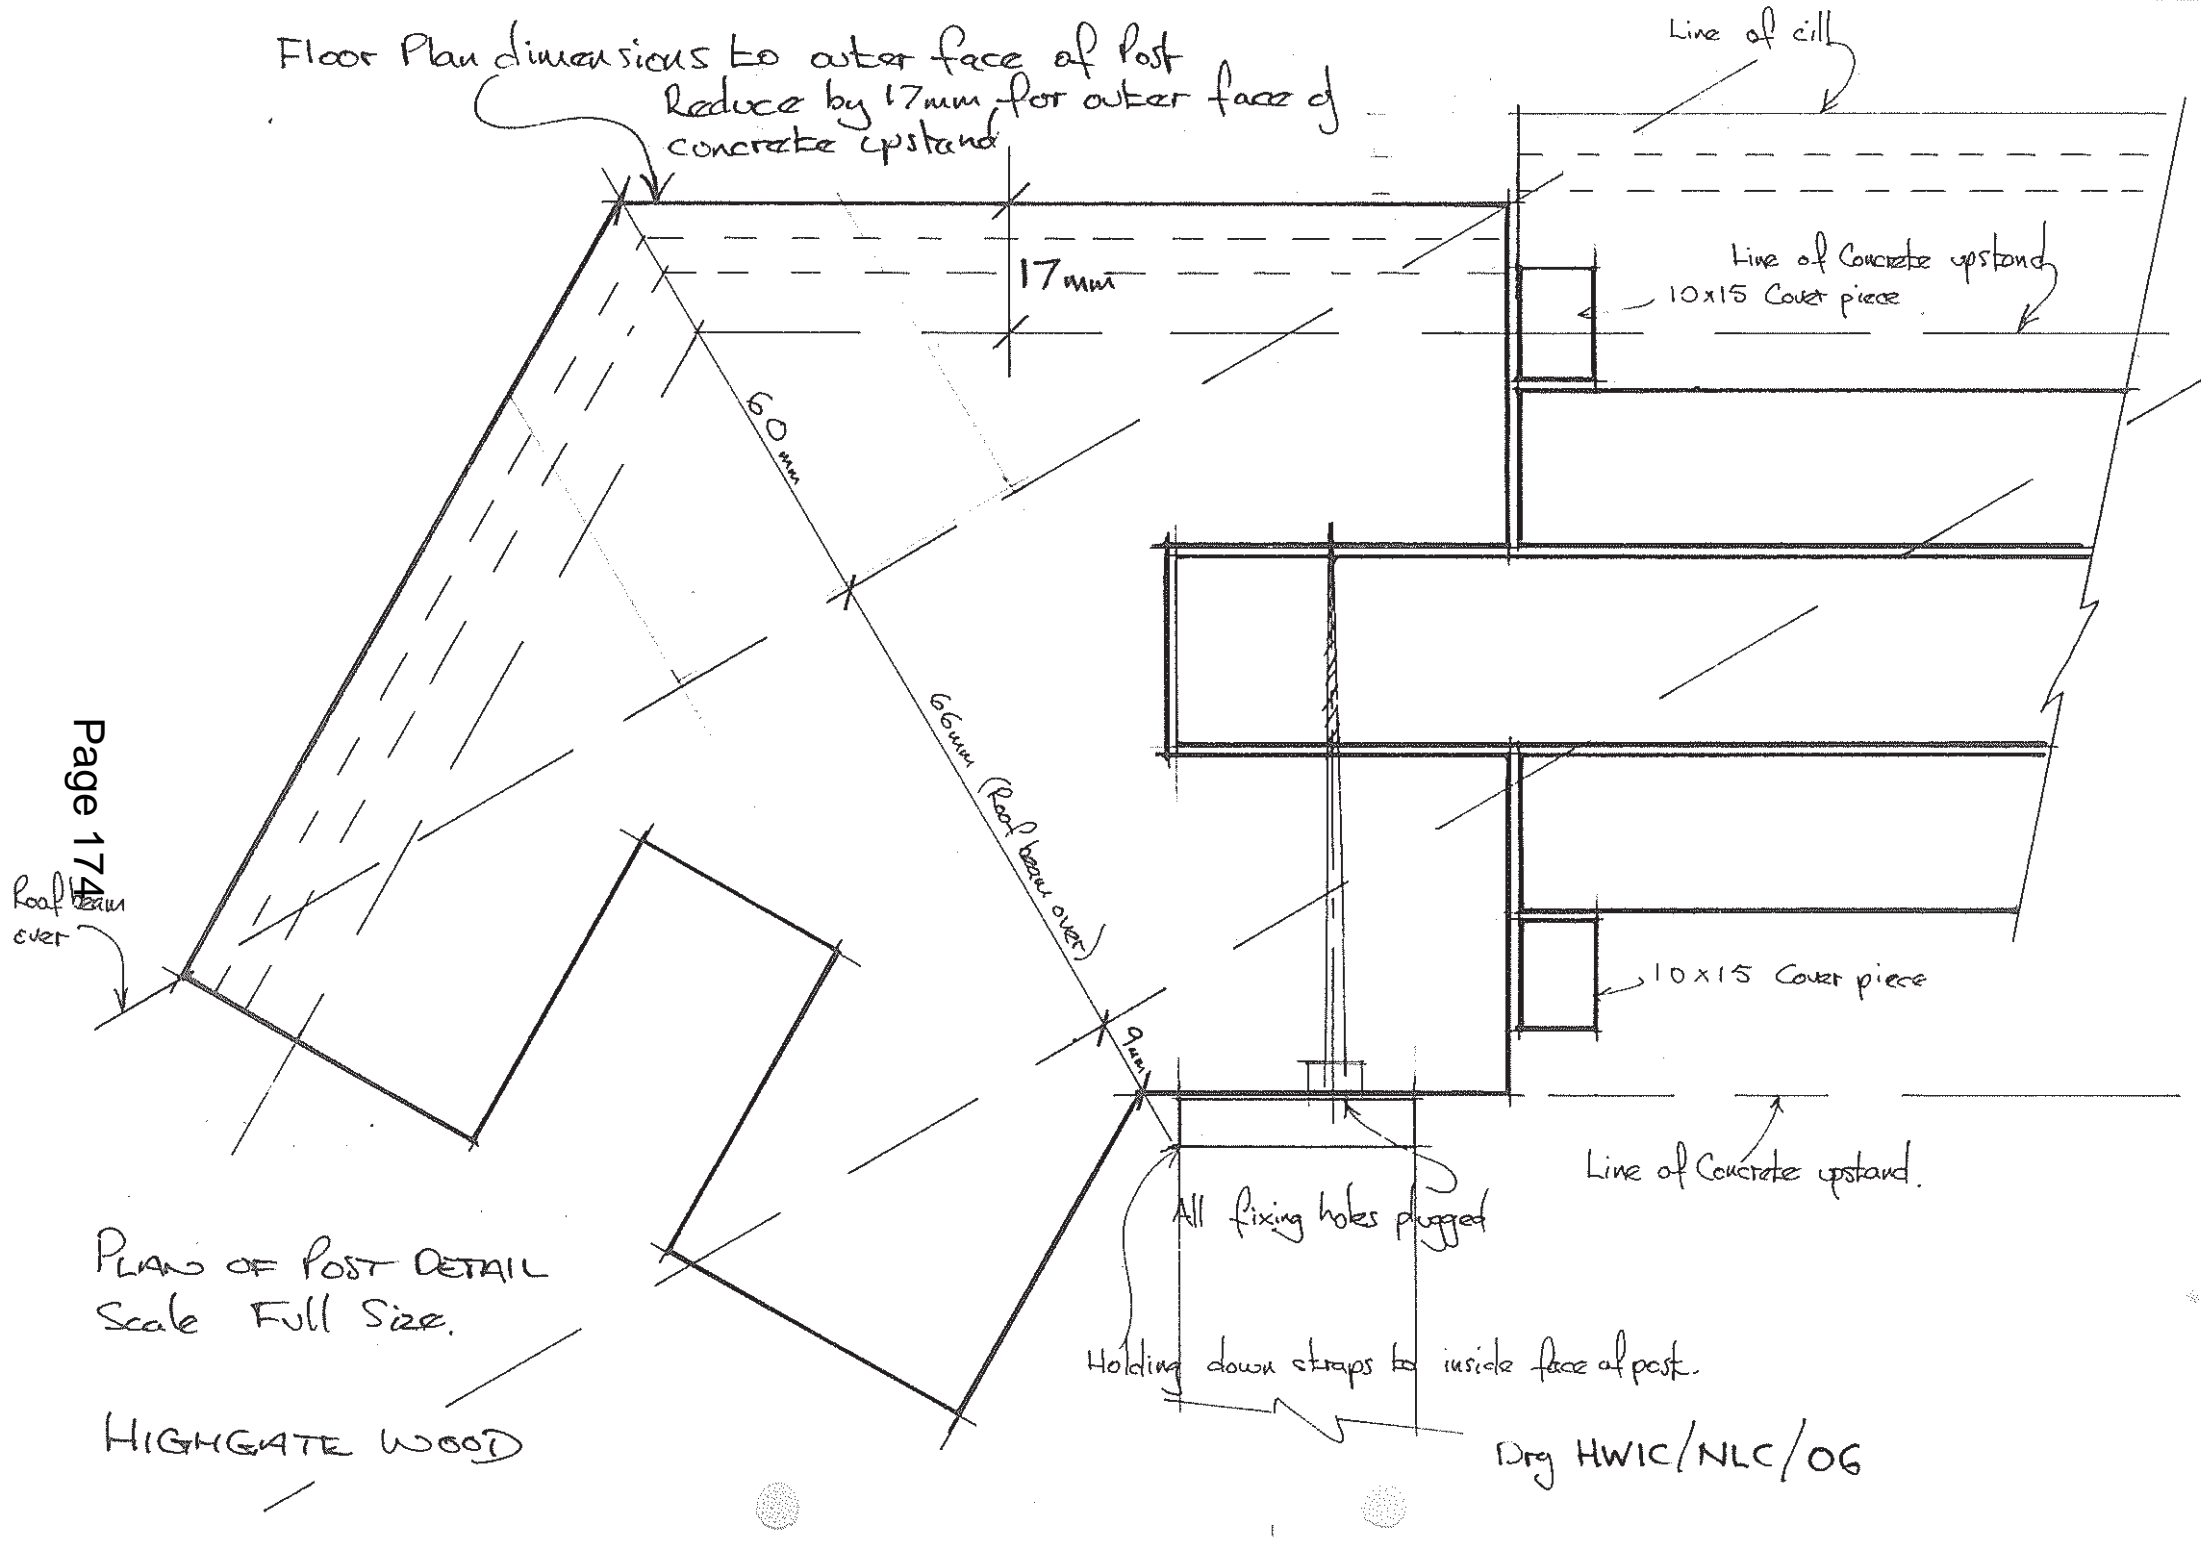 Floor Plan dimensions to outer face of Post
Reduce by 17mm for outer face of
concrete upstand
Line of cill
17mm
Line of Concrete upstand
10x15 Cover piece
60mm
66mm (Roof beam over)
9mm
Page 174
Roof beam
over
10x15 Cover piece
Line of Concrete upstand.
All fixing holes plugged
Holding down straps to inside face of post.
PLAN OF POST DETAIL
Scale Full Size.
HIGHGATE WOOD
Drg HWIC/NLC/06